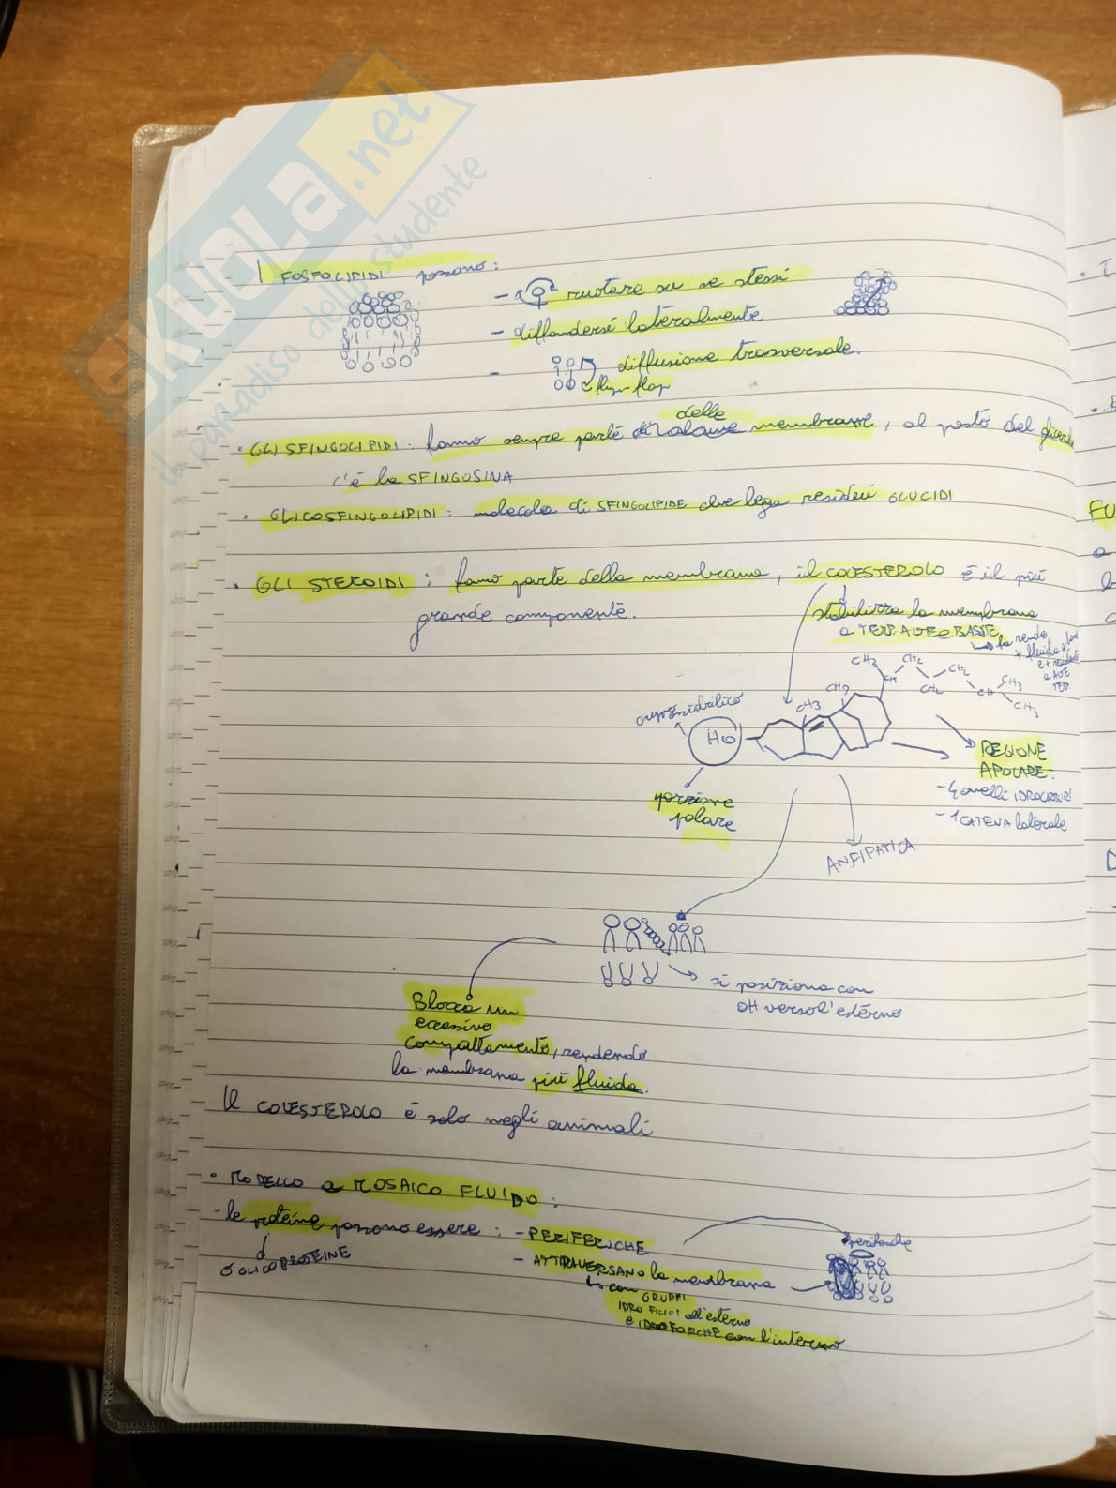 SKUOLA.net
il paradiso dello studente
I FOSFOLIPIDI possono:
- ruotare su se stessi
- diffondersi lateralmente
- diffusione trasversale.
flip-flop
delle
• GLI SFINGOLIPIDI: fanno sempre parte membrane, al posto del
c'è la SFINGOSINA
• GLICOSFINGOLIPIDI: molecola di SFINGOLIPIDE che lega residui GLUCIDI
• GLI STEROIDI: fanno parte della membrana, il COLESTEROLO è il più
grande componente.
stabilizza la membrana
a TEMP. ALTE e BASSE
la rende
+ fluida
CH2 CH2 CH2
CH CH2 CH CH3
CH3
CH3 CH3
gruppo idrossilico
HO
REGIONE
APOLARE:
- 4 anelli IDROCARB
- 1 CATENA laterale
porzione
polare
ANFIPATICA
si posiziona con
OH verso l'esterno
Blocca un
eccessivo
compattamento, rendendo
la membrana più fluida.
Il COLESTEROLO è solo negli animali
• MODELLO a MOSAICO FLUIDO:
- le proteine possono essere: - PERIFERICHE
o GLICOPROTEINE
- ATTRAVERSANO la membrana
periferiche
con GRUPPI
IDROFILICI all'esterno
e IDROFOBICHE con l'interno